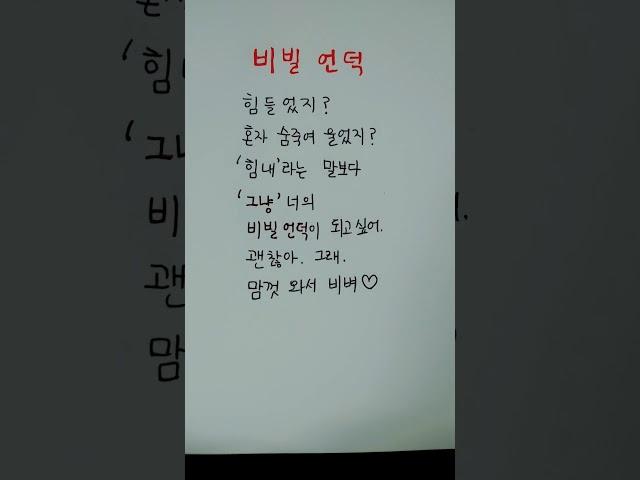 비빌 언덕
힘들었지?
혼자 숨죽여 울었지?
'힘내'라는 말보다
'그냥' 너의
비빌 언덕이 되고싶어.
괜찮아. 그래.
맘껏 와서 비벼♡